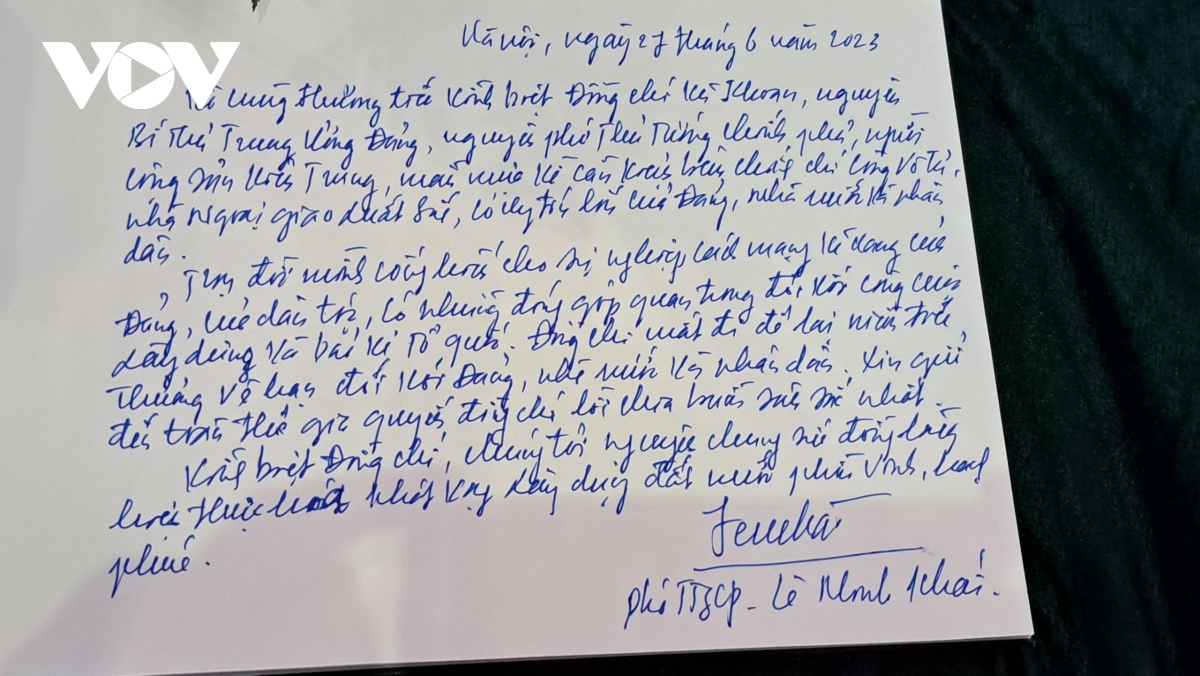 VOV
Hà Nội, ngày 27 tháng 6 năm 2023
Vô cùng thương tiếc kính biệt Đồng chí Vũ Khoan, nguyên
Bí thư Trung ương Đảng, nguyên phó Thủ tướng chính phủ, người
cộng sản kiên Trung, mẫu mực về cần kiệm liêm chính chí công vô tư,
nhà ngoại giao xuất sắc, có uy tín lớn của Đảng, nhà nước và nhân
dân.
Trọn đời mình cống hiến cho sự nghiệp cách mạng vẻ vang của
Đảng, của dân tộc, có những đóng góp quan trọng đối với công cuộc
xây dựng và bảo vệ Tổ quốc. Đồng chí mất đi để lại niềm tiếc
thương vô hạn đối với Đảng, nhà nước và nhân dân. Xin gửi
đến toàn thể gia quyến đồng chí lời chia buồn sâu sắc nhất.
Kính biệt Đồng chí, chúng tôi nguyện chung sức đồng lòng
thực hiện khát vọng xây dựng đất nước phồn vinh, hạnh
phúc.
phó TTgCP - Lê Minh Khái.